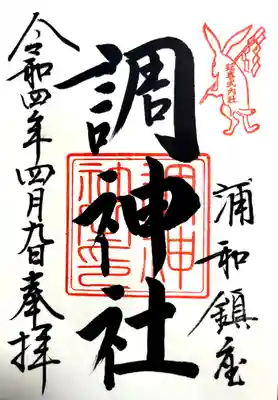 延喜式内社
浦和鎮座
調神社
令和四年四月九日奉拝